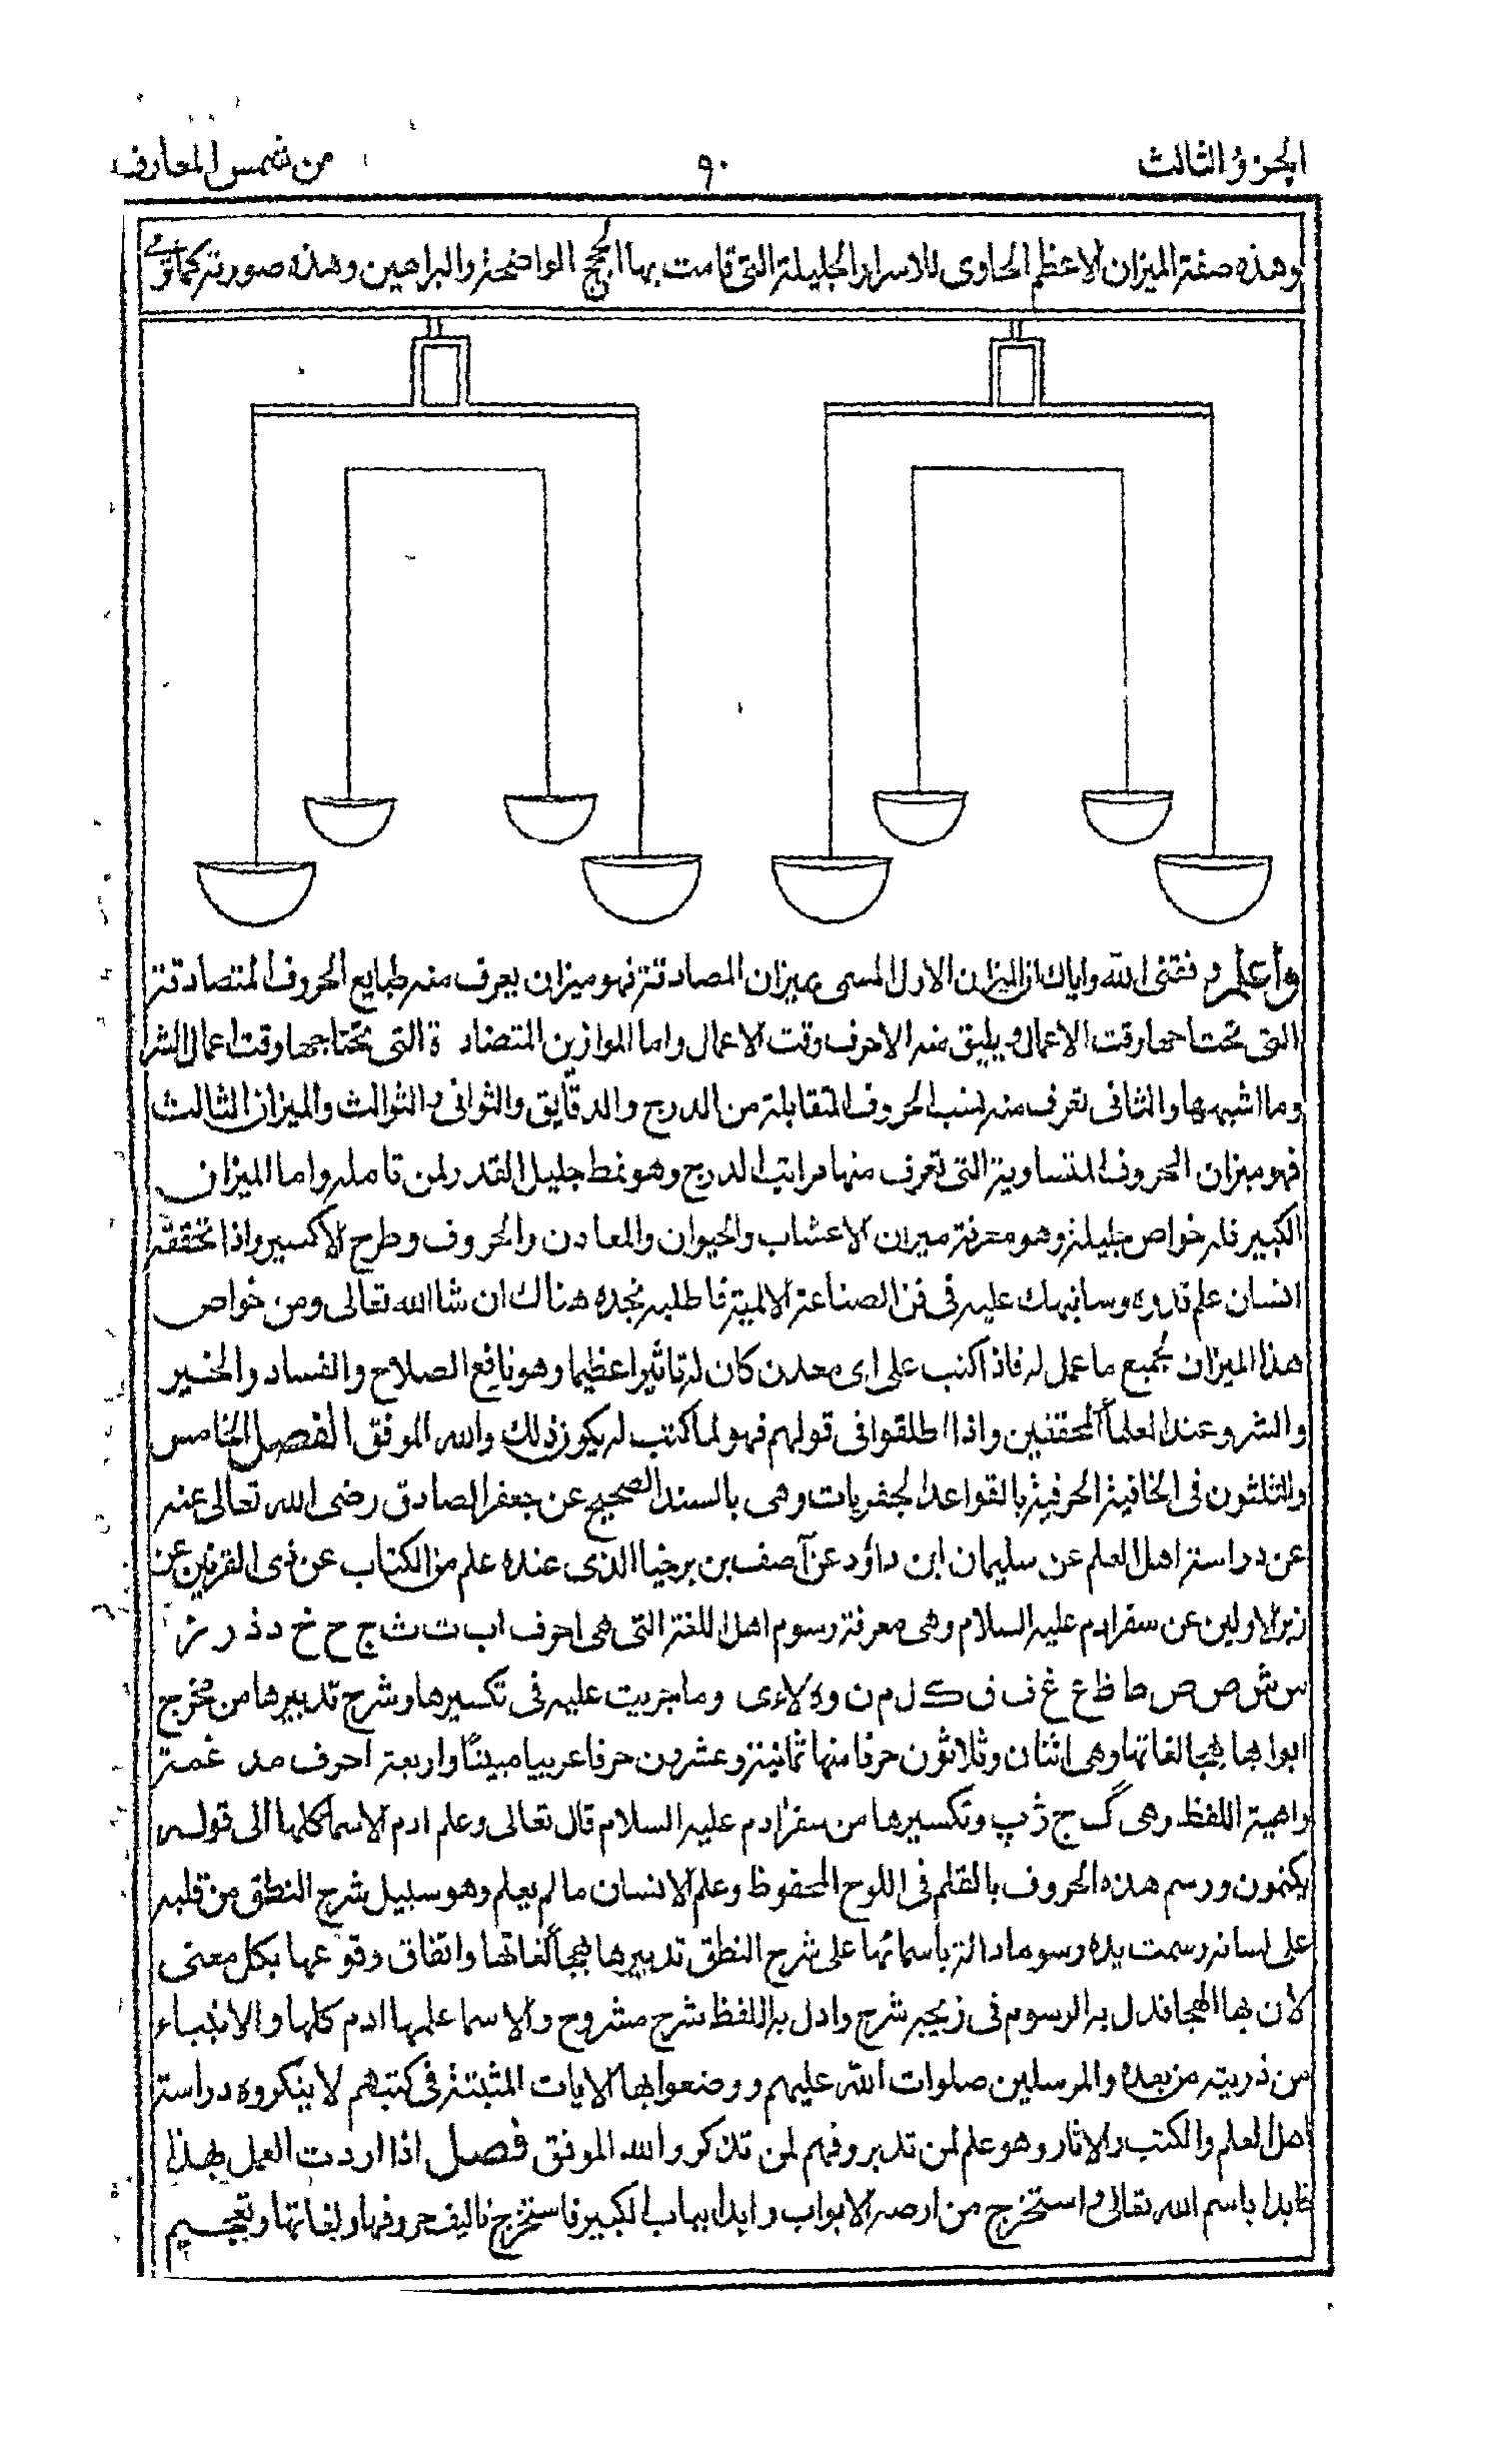 الجزؤ الثالث
٩٠
من شمس المعارف
وهذه صفة الميزان الاعظم الحاوى للاسرار الجليلة التى قامت بها الحجج الواضحة والبراهين وهذه صورته كما ترى
واعلم وفقنى الله واياك ان الميزان الاول المسمى بميزان المصادقة فهو ميزان يعرف منه طبايع الحروف المتصادقة
التى تحتاجها وقت الاعمال ويليق منه الاحرف وقت الاعمال واما الموازين المتضادة التى تحتاجها وقت اعمال الشر
وما اشبهها والثانى تعرف منه نسب الحروف المتقابلة من الدرج والدقايق والثوانى والثوالث والميزان الثالث
فهو ميزان الحروف المتساوية التى تعرف منها مراتب الدرج وهو نمط جليل القدر لمن تامله واما الميزان
الكبير فله خواص جليلة وهو معرفة ميزان الاعشاب والحيوان والمعادن والحروف وطرح الاكسير واذا تحققه
انسان علم قدره وسانبهك عليه فى فن الصناعة الالهية فاطلبه تجده هناك ان شا الله تعالى ومن خواص
هذا الميزان لجميع ما عمل له فاذا كتب على اى معدن كان له تاثيرا عظيما وهو نافع الصلاح والفساد والخير
والشر وعند العلماً المحققين واذا اطلقوا فى قولهم فهو لما كتب له يكون ذلك والله الموفق الفصل الخامس
والثلثون فى الخافية الحرفية بالقواعد الجفريات وهى بالسند الصحيح عن جعفر الصادق رضى الله تعالى عنه
عن دراسة اهل العلم عن سليمان ابن داؤد عن آصف بن برخيا الذى عنده علم من الكتاب عن ذى القرنين عن
زبر الاولين عن سفر ادم عليه السلام وهى معرفة رسوم اهل اللغة التى هى احرف اب ت ث ج ح خ د ذ ر ز
س ش ص ض ط ظ ع غ ف ق ك ل م ن و ه لا ء ى وما جريت عليه فى تكسيرها وشرح تدبيرها من مخرج
ابوابها بهجا لغاتها وهى اثنان وثلاثون حرفا منها ثمانية وعشرون حرفا عربيا مبيناً واربعة احرف
واهية اللفظ وهى گ چ ژ پ وتكسيرها من سفر ادم عليه السلام قال تعالى وعلم ادم الاسما كلها الى قوله
يكتمون ورسم هذه الحروف بالقلم فى اللوح المحفوظ وعلم الانسان ما لم يعلم وهو سبيل شرح النطق من قلبه
على لسانه رسمت يده رسوما دالة باسمائها على شرح النطق تدبيرها بهجاً لغاتها واتفاق وقوعها بكل معنى
لان بها الهجا فدل به الرسوم فى شرح وادل به اللفظ شرح مشروح والاسما علمها ادم كلها والانبياء
من ذريته من بعده والمرسلين صلوات الله عليهم ووضعوا بها الايات المثبتة فى كتبهم لا ينكروه دراسة
اهل العلم والكتب والاثار وهو علم لمن تدبر وفهم لمن تذكر والله الموفق فصل اذا اردت العمل بهذا
فابدا باسم الله تعالى واستخرج من ارصه الابواب وابدا بباب الكبير فاستخرج تاليف حروفها ولغاتها وتعجيم